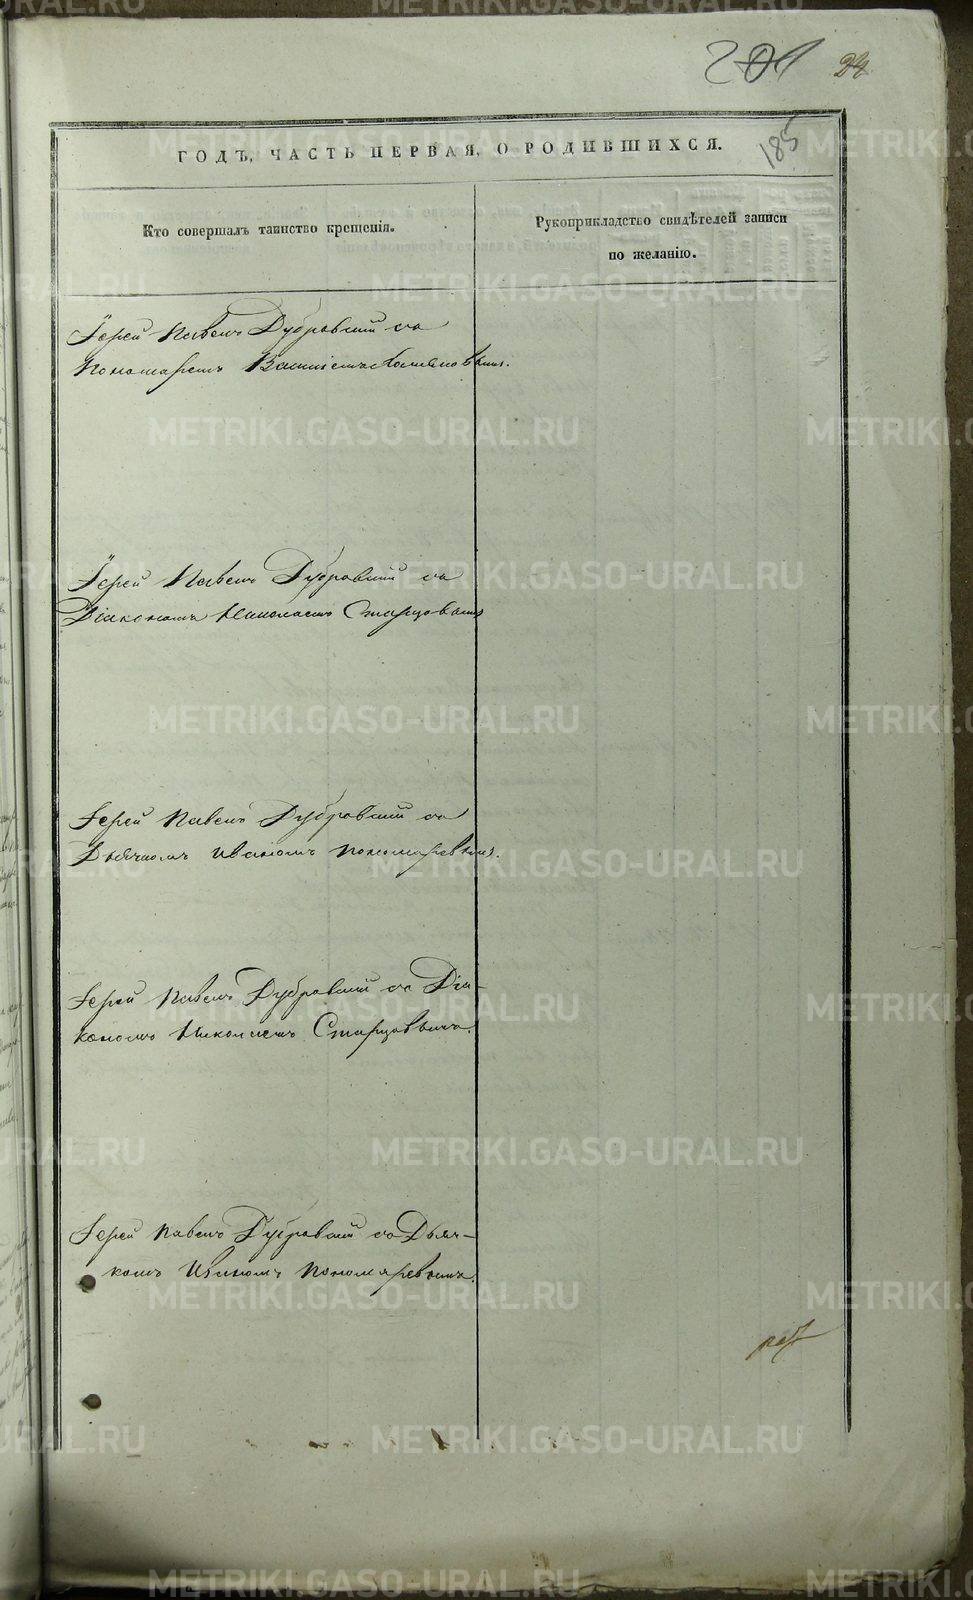 201 24
185
ГОДЪ, ЧАСТЬ ПЕРВАЯ, О РОДИВШИХСЯ.
Кто совершалъ таинство крещенія.
Рукоприкладство свидѣтелей записи
по желанію.
Іерей Павелъ Дубровскій съ
Пономаремъ
Іерей Павелъ Дубровскій съ
Діакономъ Николаемъ Старцовымъ
Іерей Павелъ Дубровскій съ
Дьячкомъ Иваномъ Пономаревымъ.
Іерей Павелъ Дубровскій съ Діа-
кономъ Николаемъ Старцовымъ.
Іерей Павелъ Дубровскій съ Дьяч-
комъ Иваномъ Пономаревымъ.
METRIKI.GASO-URAL.RU